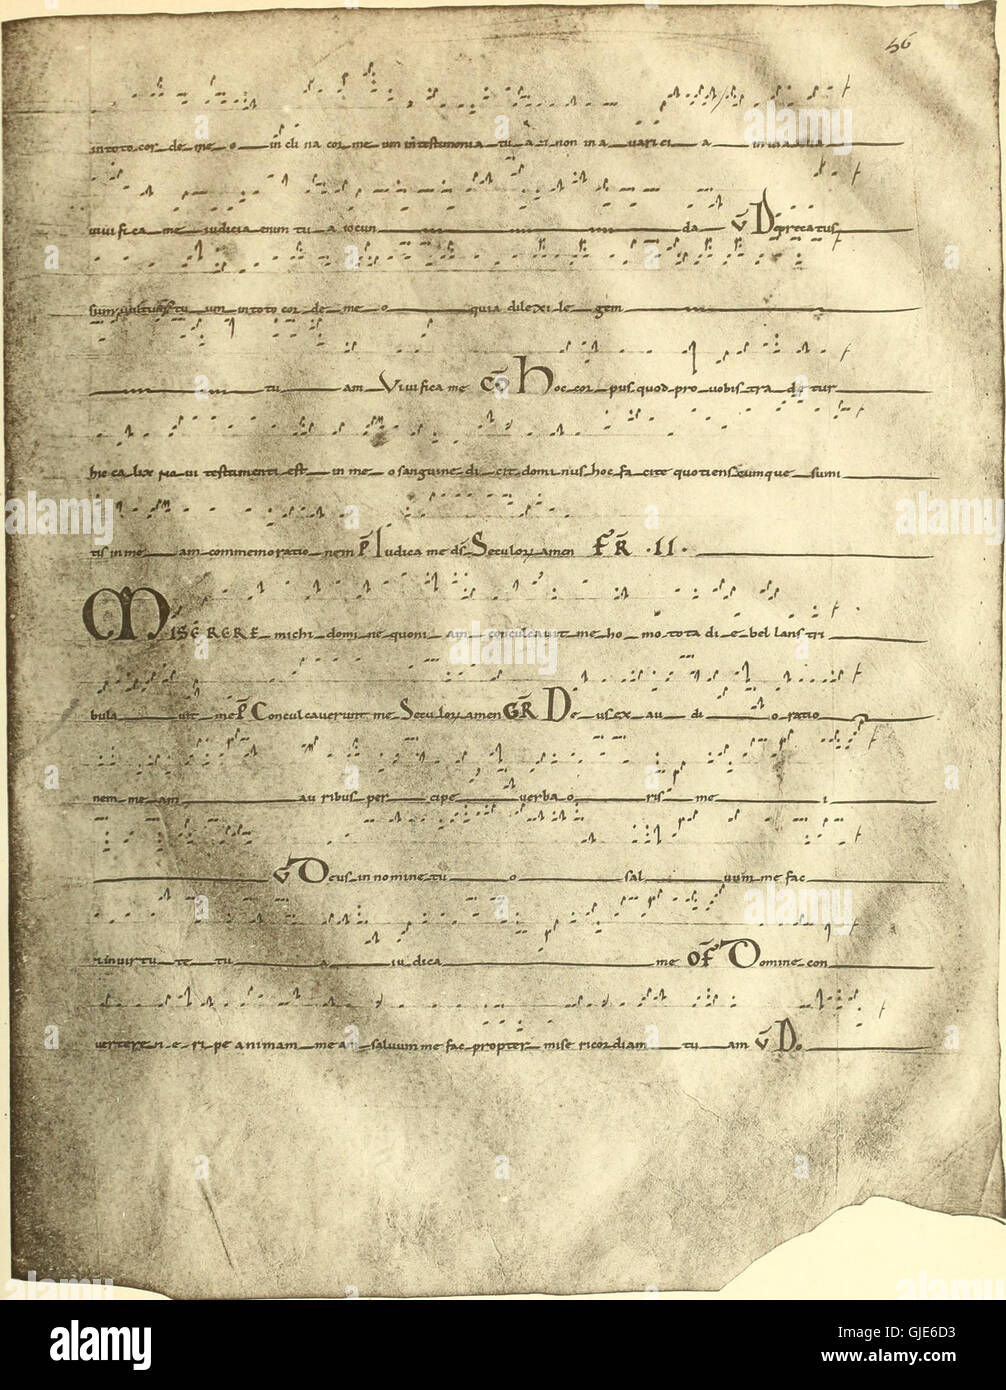 56
in toto cor de me o in cli na cor me um in testimonia tu a & non in a uarici a in uia tua
uiuifi ca me iudicia enim tu a iocun da V Deprecatus
sum uultum tu um in toto cor de me o quia dilexi le gem
tu am Viui fica me CO hoc cor pus quod pro uobis tra de tur
hic ca lix no ui testimenti est in me o sanguine di cit domi nus hoc fa cite quotienscumque sumi
tis in me am commemoratio nem P Iudica me ds Seculorum amen FR II
MISERERE michi domi ne quoni am conculcauit me ho mo tota di e bel lans tri
bula uit me P Conculcauerunt me Seculorum amen GR De us ex au di o ratio
nem me am au ribus per cipe uerba o ris me i
V Deus in nomine tu o sal uum me fac
& in uirtu te tu a iu dica me OF Domine con
uertere & e ri pe animam me am saluum me fac propter mise ricordiam tu am V Do
alamy
Image ID: GJE6D3
www.alamy.com